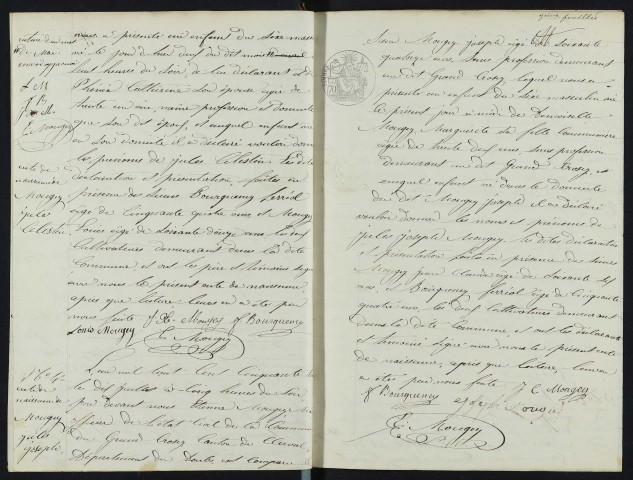 nous a présenté un enfant du sexe mascu
lin né le jour d'hier
huit heures du soir de lui déclarant et de
Catherine son épouse âgée de
trente en une même profession et domicile
que son dit époux, et auquel enfant
en son domicile il a déclaré vouloir donner
les prénoms de jules Célestin. Les dites
déclaration et présentation faites en
présence des sieurs Bourquency ferréol
âgé de Cinquante quatre ans et Mougey
Louis âgé de Soixante douze ans les deux
Cultivateurs demeurant dans la dite
Commune et ont les père et témoins signé
avec nous le présent acte de naissance
après que lecture leur en a été par
nous faite J. C. Mougey f Bourquency
Louis Mougey
E. Mougey
acte de
naissance
Mougey
jules
Célestin
L'an mil huit cent cinquante
le dix juillet à cinq heures du soir
par devant nous Etienne Mougey
officier de l'état civil de la Commune
du Grand Crosey Canton de Clerval
Département du Doubs, est comparu
acte de
naissance de
Mougey
jules
joseph
Sieur Mougey joseph âgé de Soixante
quatorze ans, sans profession demeurant
au dit Grand Crosey, lequel nous a
présenté un enfant du sexe masculin né
le présent jour à midi de Demoiselle
Mougey Marguerite sa fille
âgée de trente deux ans sans profession
demeurant au dit Grand Crosey, et
auquel enfant né dans le domicile
du dit Mougey joseph il a déclaré
vouloir donner les noms et prénoms de
jules joseph Mougey. les dites déclaration
et présentation faites en présence des sieurs
Mougey jean Claude âgé de Soixante
ans et Bourquency ferréol âgé de Cinquante
quatre ans, les deux Cultivateurs demeurant
dans la dite Commune, et ont les déclarant
et témoins signé avec nous le présent acte
de naissance, après que lecture leur en
a été par nous faite J C Mougey
f Bourquency joseph Mougey
E. Mougey